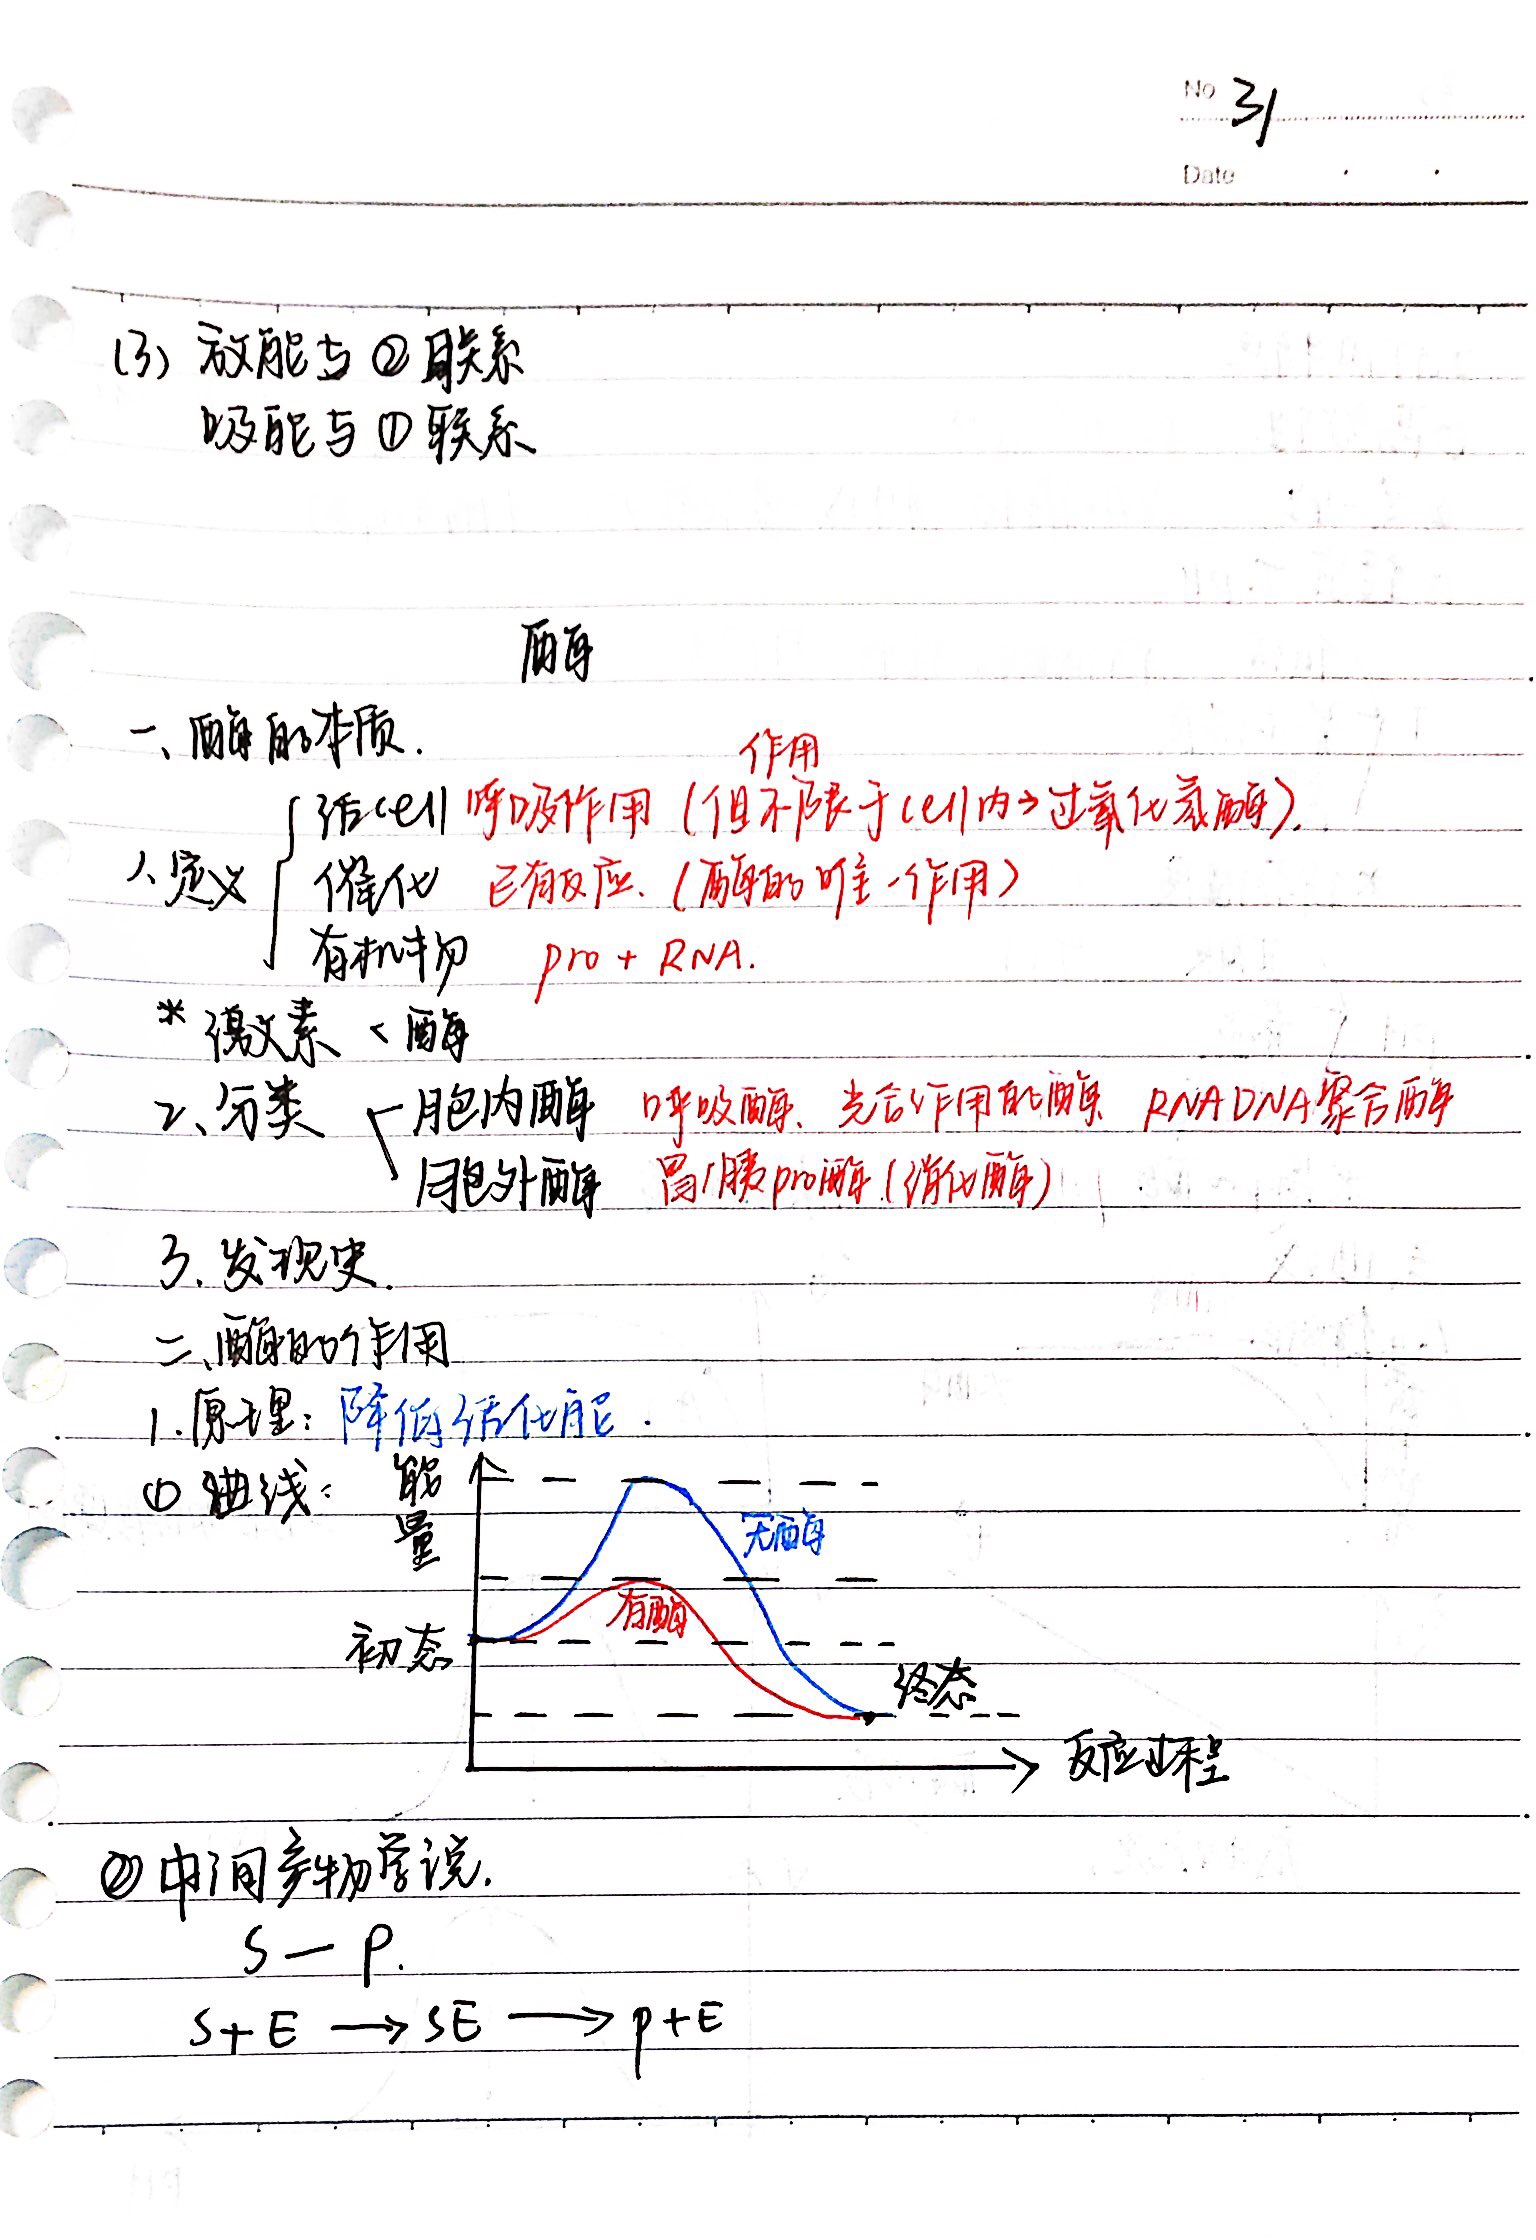 No 31
Date
(3) 放能与②联系
吸能与①联系
酶
一、酶的本质.
作用
活cell 呼吸作用 (但不限于cell内→过氧化氢酶).
1、定义 催化 已有反应. (酶的唯一作用)
有机物 pro + RNA.
* 激素 < 酶
2、分类 胞内酶 呼吸酶、光合作用的酶 RNA DNA聚合酶
胞外酶 胃/胰pro酶 (消化酶)
3. 发现史.
二、酶的作用
1. 原理: 降低活化能.
① 曲线: 能量
无酶
有酶
初态
终态
反应过程
② 中间产物学说.
S — P.
S+E → SE → P+E